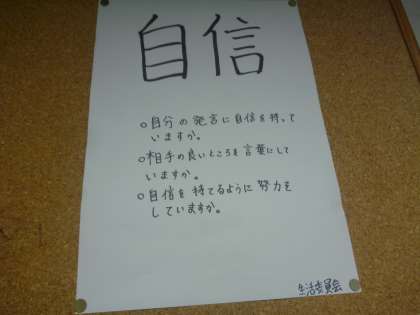 自信
○自分の発言に自信を持って
いますか。
○相手の良いところを言葉にして
いますか。
○自信を持てるように努力を
していますか。
生活委員会